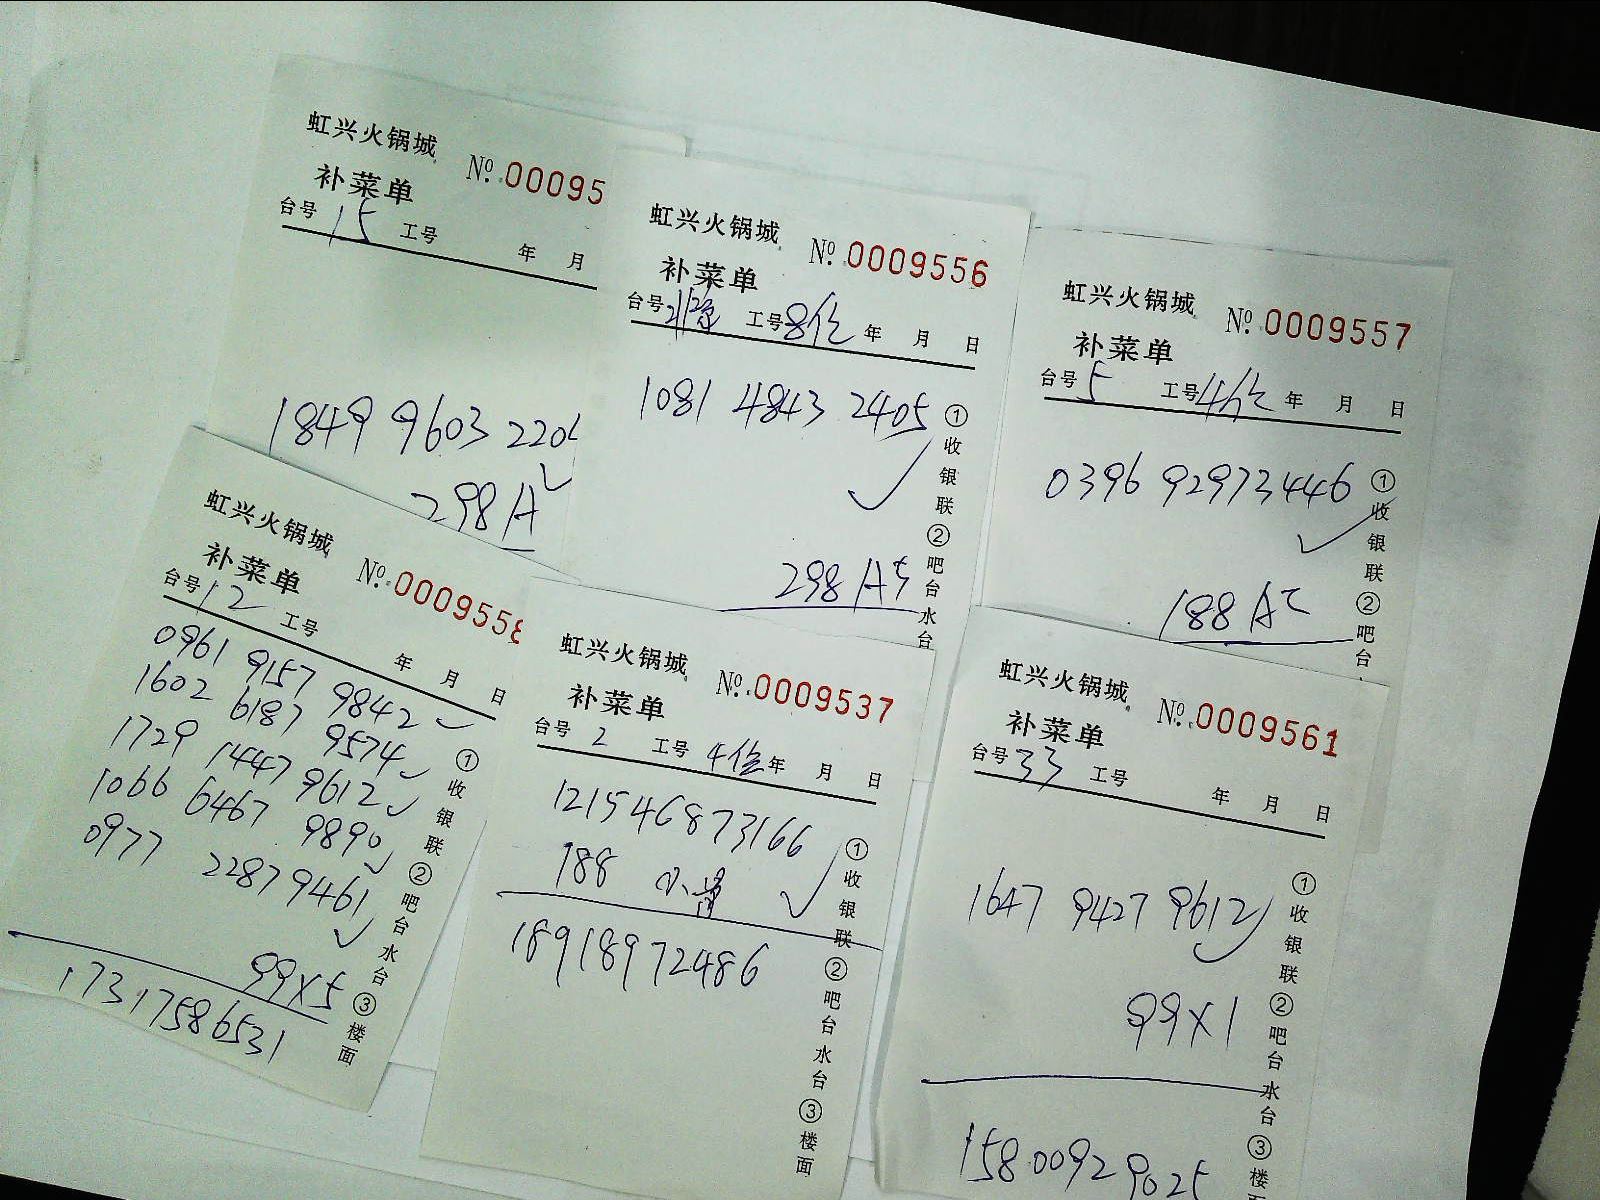 虹兴火锅城
补菜单
№.00095
台号 15 工号 年 月
1849 9603 220
298 A
虹兴火锅城
补菜单
№.0009556
台号 工号 8位 年 月 日
1081 4843 2405
298 A
①收银联②吧台水台
虹兴火锅城
补菜单
№.0009557
台号 5 工号 4位 年 月 日
0396 92973446
188 A
①收银联②吧台
虹兴火锅城
补菜单
№.0009558
台号 12 工号 年 月 日
0961 9157 9842
1602 6187 9574
1729 1447 9612
1066 6467 9890
0977 22879461
99×5
17317586531
①收银联②吧台水台③楼面
虹兴火锅城
补菜单
№.0009537
台号 2 工号 4位 年 月 日
121546873166
188
18918972486
①收银联②吧台水台③楼面
虹兴火锅城
补菜单
№.0009561
台号 33 工号 年 月 日
1647 9427 9612
99×1
15800929025
①收银联②吧台水台③楼